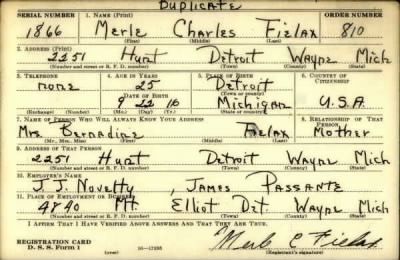 DUPLICATE
SERIAL NUMBER 1. NAME (Print) ORDER NUMBER
1866 Merle Charles Fielax 810
(First) (Middle) (Last)
2. ADDRESS (Print)
2251 Hunt Detroit Wayne Mich
(Number and street or R. F. D. number) (Town) (County) (State)
3. TELEPHONE 4. AGE IN YEARS 5. PLACE OF BIRTH 6. COUNTRY OF CITIZENSHIP
none 25 Detroit
DATE OF BIRTH (Town or county)
9 22 16 Michigan U.S.A.
(Exchange) (Number) (Mo.) (Day) (Yr.) (State or country)
7. NAME OF PERSON WHO WILL ALWAYS KNOW YOUR ADDRESS 8. RELATIONSHIP OF THAT PERSON
Mrs. Bernadine Fielax Mother
(Mr., Mrs., Miss) (First) (Middle) (Last)
9. ADDRESS OF THAT PERSON
2251 Hunt Detroit Wayne Mich
(Number and street or R. F. D. number) (Town) (County) (State)
10. EMPLOYER'S NAME
J. J. Novetty, JAMES PASSANTE
11. PLACE OF EMPLOYMENT OR BUSINESS
4840 Mt. Elliot Det Wayne Mich
(Number and street or R. F. D. number) (Town) (County) (State)
I AFFIRM THAT I HAVE VERIFIED ABOVE ANSWERS AND THAT THEY ARE TRUE.
REGISTRATION CARD
D. S. S. Form 1 (over) 16—17105 Merle C Fielax
(Registrant's signature)